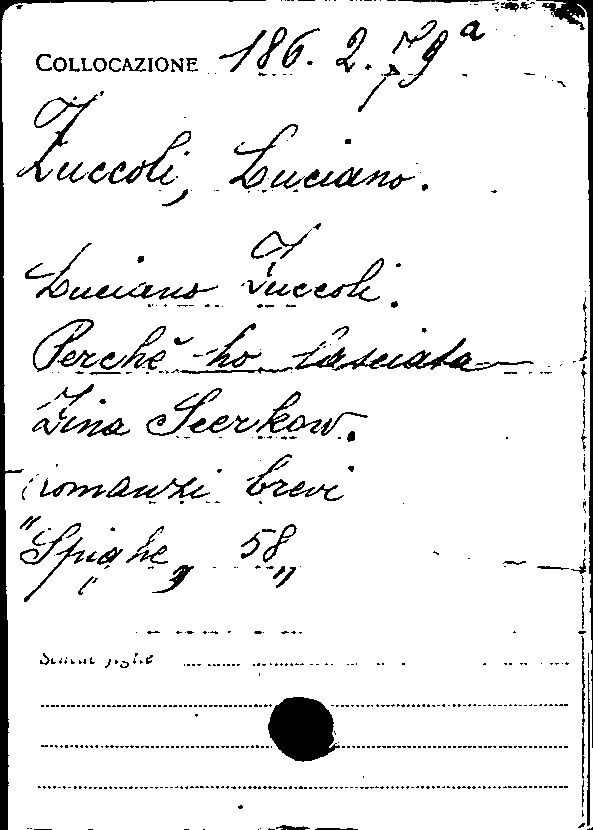 COLLOCAZIONE 186. 2. 79ª
Zuccoli, Luciano.
Luciano Zuccoli.
Perchè ho lasciata
Zina Scerkow.
romanzi brevi
"Spighe, 58"